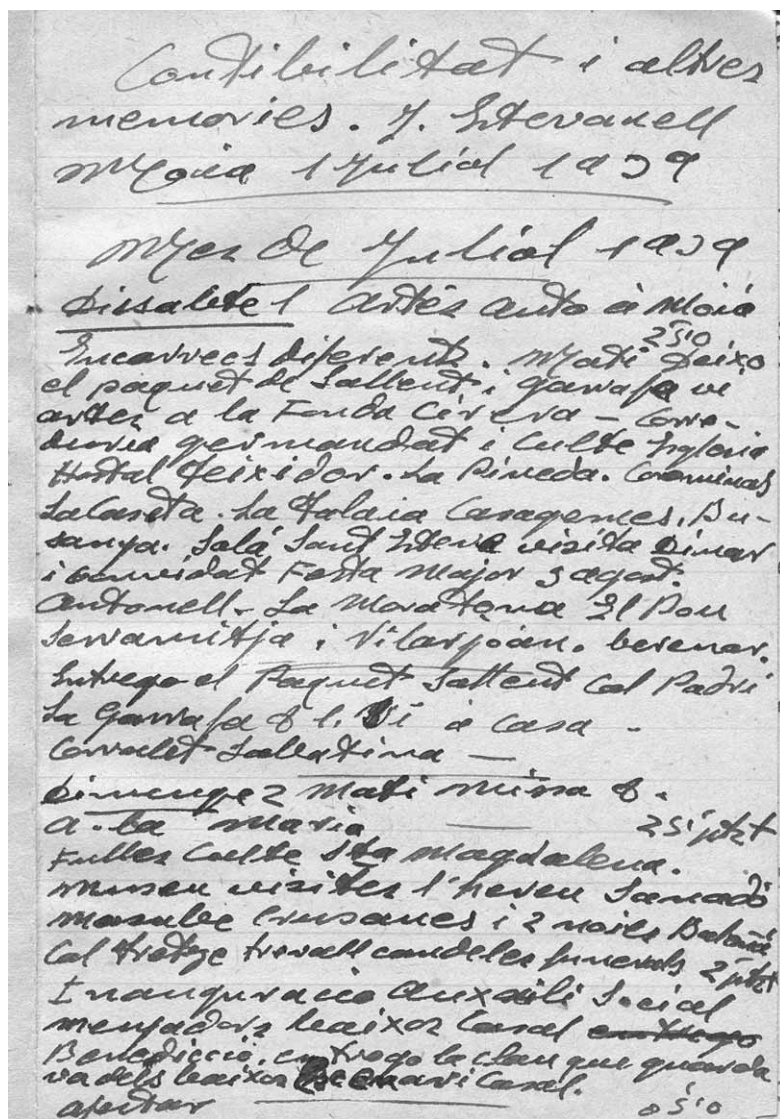 Contibilitat i altres
memories. J. Estevanell
Moia 1 Juliol 1939
Mes de Juliol 1939
Dissabte 1 Artés auto a Moià
2'50
Encarrecs diferents. Mati Deixo
el paquet de Sallent i garrafa vi
Artés a la Fonda Cirera - Corre-
duria germandat i Culte Esglesia
Hostal Teixidor. La Pineda. Coromines
La Caseta. La Talaia Casagemes. Bu-
sanya. Solá Sant Esteve visita Dinar
i convidat Festa Major 3 agost.
Antonell - La Moratona El Pou
Serramitja i Vilarjoan. berenar.
Entrego el Paquet Sallent Cal Padri
La Garrafa 8 l. Vi a casa -
Corralet Sabbatina -
Dimenge 2 Mati Missa 8.
a la Maria
25' ptzt
Fulles Culte Sta Magdalena.
Museu visites l'hereu Sanadó
Masube Crusanes i 2 noies
Cal tretze trevall candeles funerals 2 ptzt
Inauguracio Auxcili Social
menjadors baixos Casal entrego
Benedicció. entrego la clau que guarda
va dels baixos Casal.
afectar 0'50